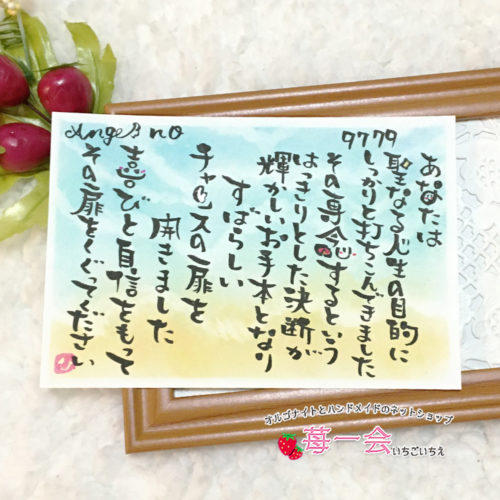 Angel no
9779
あなたは
聖なる人生の目的に
しっかりと打ちこんできました
その専念するという
はっきりとした決断が
輝かしいお手本となり
すばらしい
チャンスの扉を
開きました
喜びと自信をもって
その扉をくぐってください
オルゴナイトとハンドメイドのネットショップ
苺一会いちごいちえ